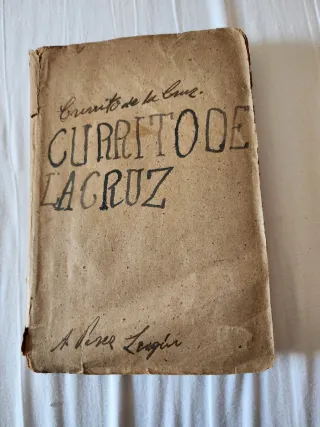 Currito de la Cruz.
CURRITO DE
LA CRUZ
A Perez Lugin